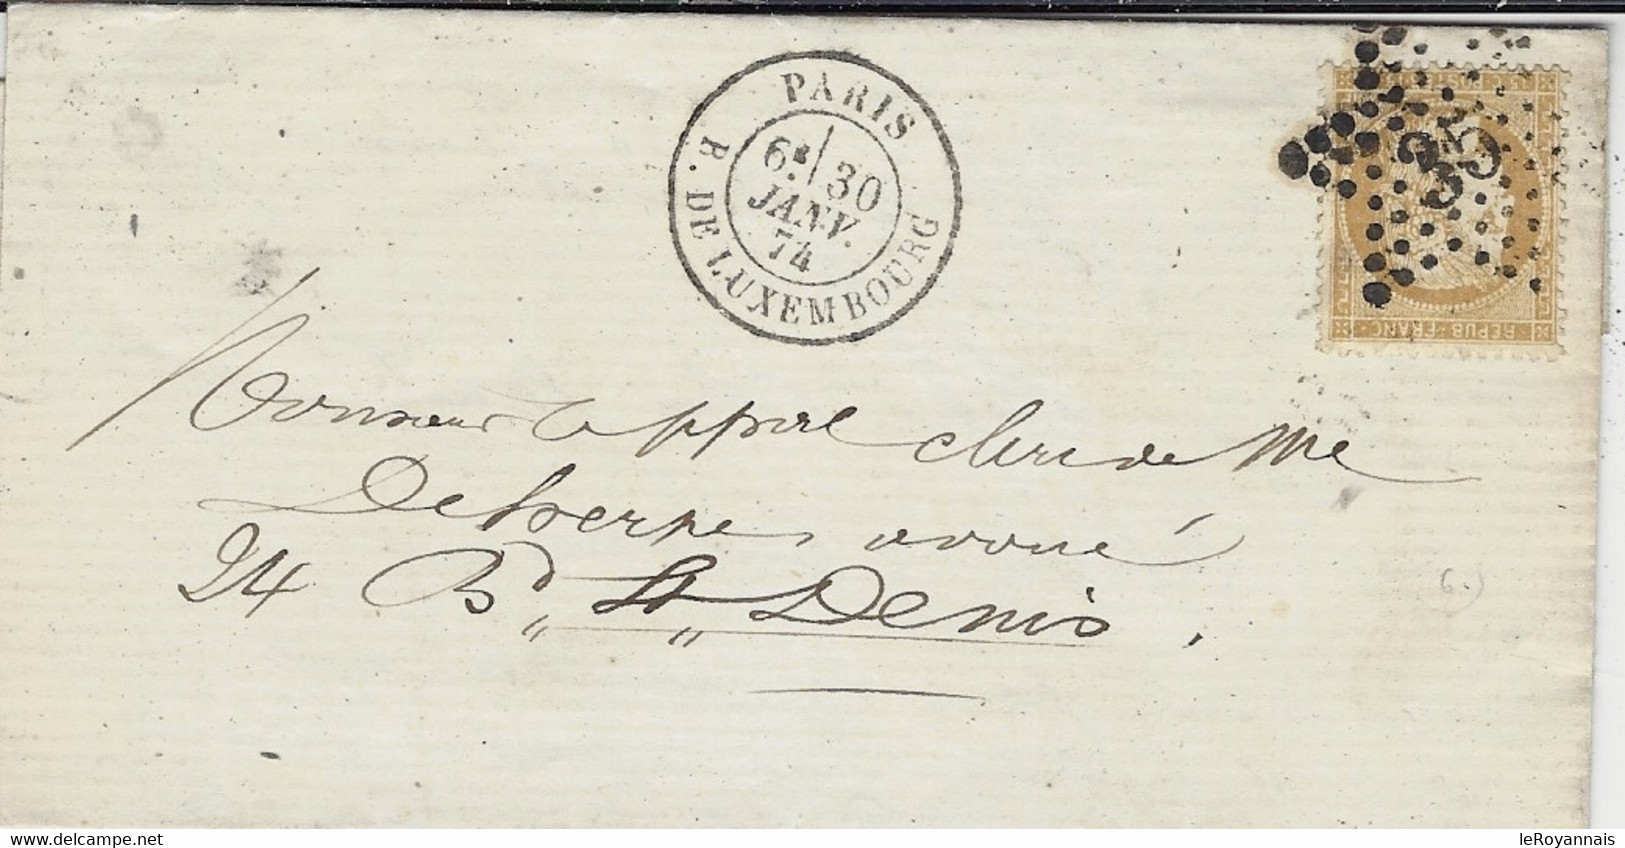 PARIS
6ᴱ/30
JANV.
74
F. DE LUXEMBOURG
35
REPUB. FRANC.
Monsieur clerc de Me
avoué
24 Bd St Denis,
6.)
www.delcampe.net
leRoyannais